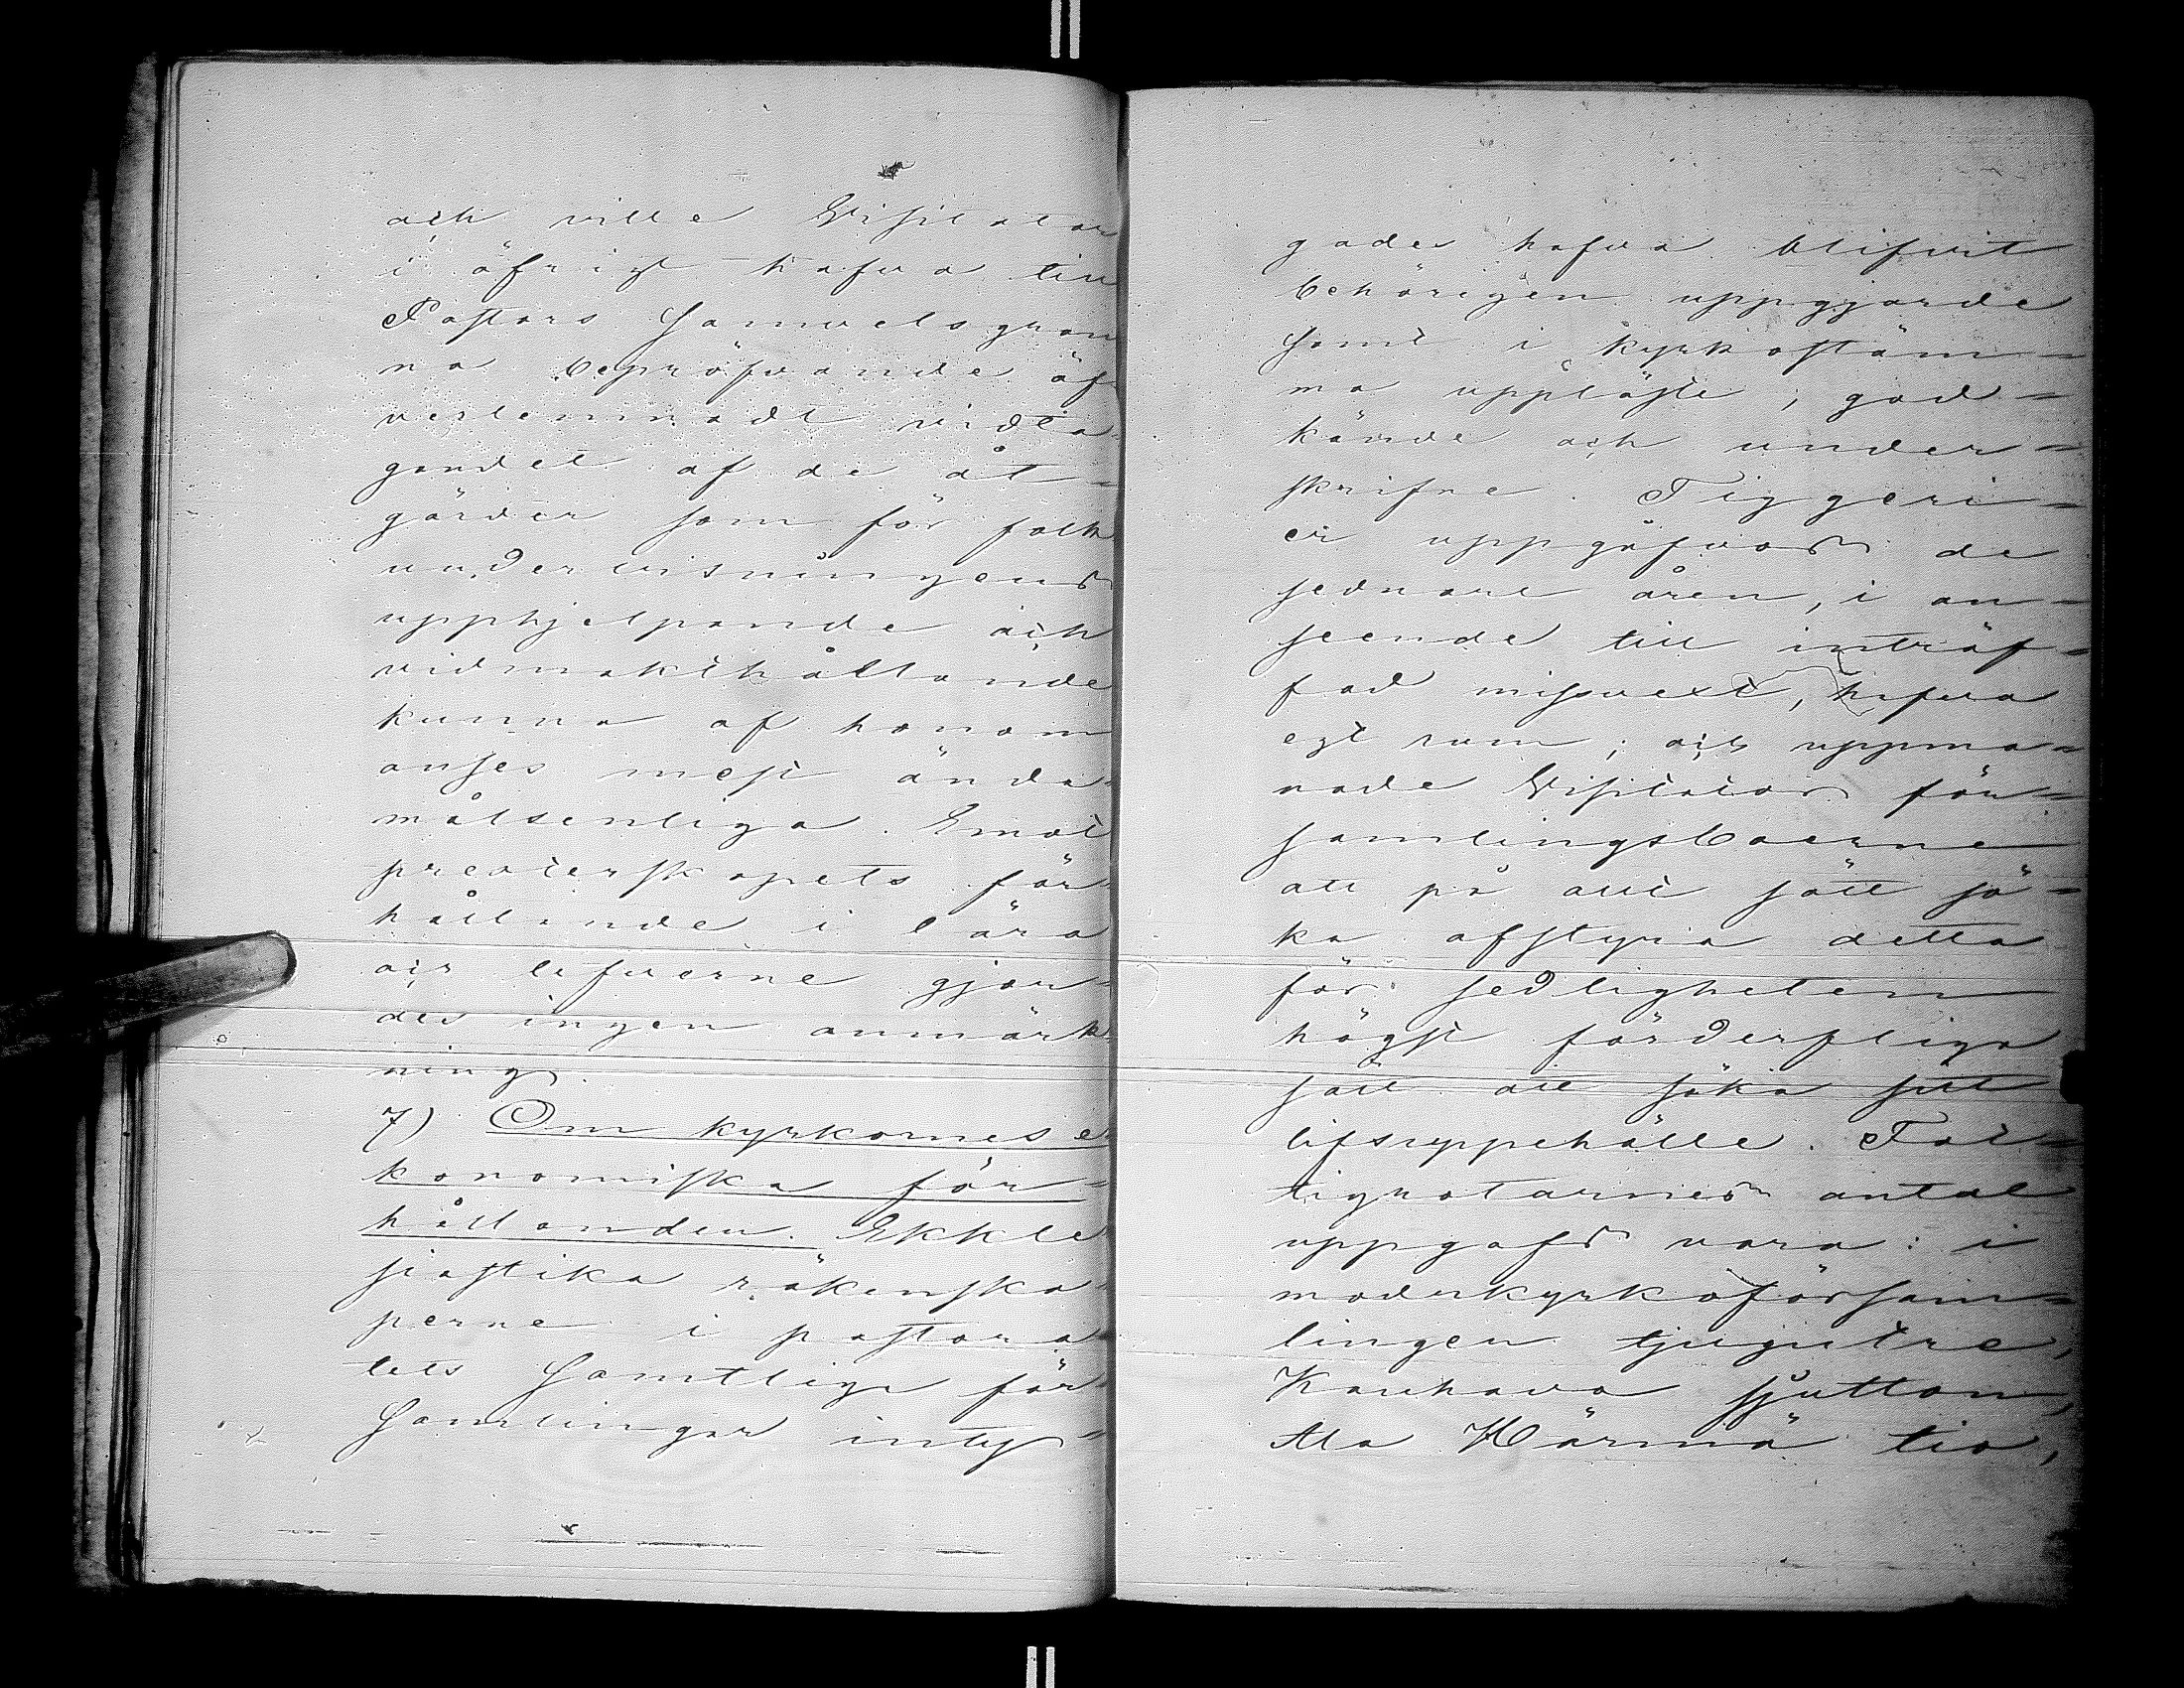 och ville Visitator
i öfrigt hafva till
Pastors samvelsgran
na bepröfvande öf
verlemnadt vidta-
gandet af de åt-
gärder som för folk
undervisningens
upphjelpande och
vidmakthållande
kunna af honom
anses mest ända-
målsenliga. Emot
presterskapets för
hållande i lära
och lefverne gjor-
des ingen anmärk
ning.
7) Om kyrkornes e
konomiska för-
hållanden. Ekkle
siastika räkenska-
perne i pastora
tets samtliga för-
samlingar inty-
gades hafva blifvit
behörigen uppgjorde
samt i kyrkostäm-
ma uppläste, god-
kände och under-
skrifne. Tiggeri-
er uppgåfvos de
sednare åren, i an-
seende till inträf-
fad missvext, hafva
egt rum; och uppma-
nade Visitator för-
samlingsboerne
att på allt sätt sö-
ka afstyra detta
för sedligheten
högst förderfliga
sätt att söka sitt
lifsuppehälle. Fat-
tighotarnes antal
uppgafs vara: i
moderkyrkoförsam-
lingen tjugutre,
Kauhava sjutton,
Ala Härmä tio,